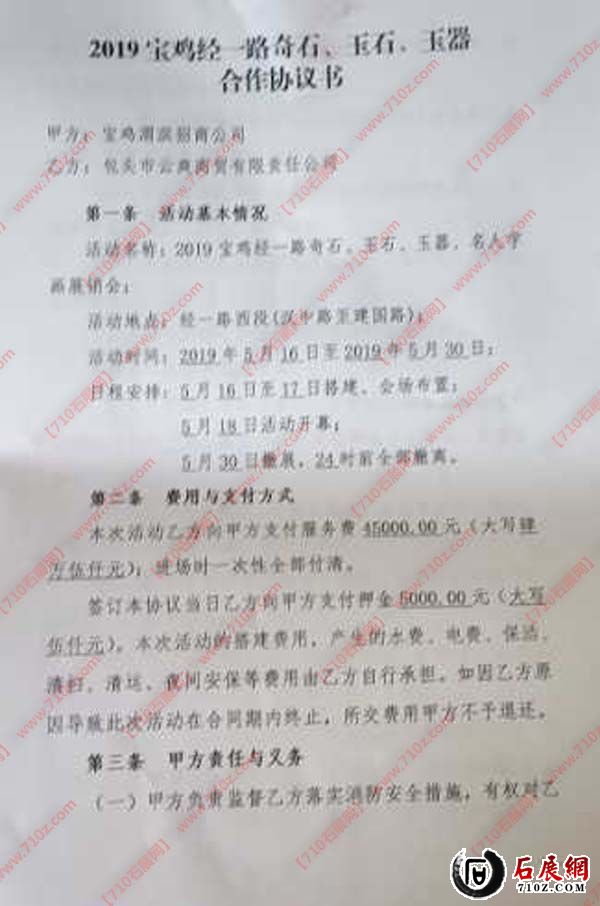 2019 宝鸡经一路奇石、玉石、玉器
合作协议书
甲方：宝鸡渭滨招商公司
乙方：包头市云典商贸有限责任公司
第一条 活动基本情况
活动名称：2019 宝鸡经一路奇石、玉石、玉器、名人字
画展销会；
活动地点：经一路西段(汉中路至建国路)；
活动时间：2019 年 5 月 16 日至 2019 年 5 月 30 日；
日程安排：5 月 16 日至 17 日搭建、会场布置；
5 月 18 日活动开幕；
5 月 30 日撤展，24 时前全部撤离。
第二条 费用与支付方式
本次活动乙方向甲方支付服务费 45000.00 元（大写肆
万伍仟元）；进场时一次性全部付清。
签订本协议当日乙方向甲方支付押金 5000.00 元（大写
伍仟元）。本次活动的搭建费用，产生的水费、电费、保洁、
清扫、清运、夜间安保等费用由乙方自行承担。如因乙方原
因导致此次活动在合同期内终止，所交费用甲方不予退还。
第三条 甲方责任与义务
（一）甲方负责监督乙方落实消防安全措施，有权对乙
【710石展网】www.710z.com
石展網
710Z.COM